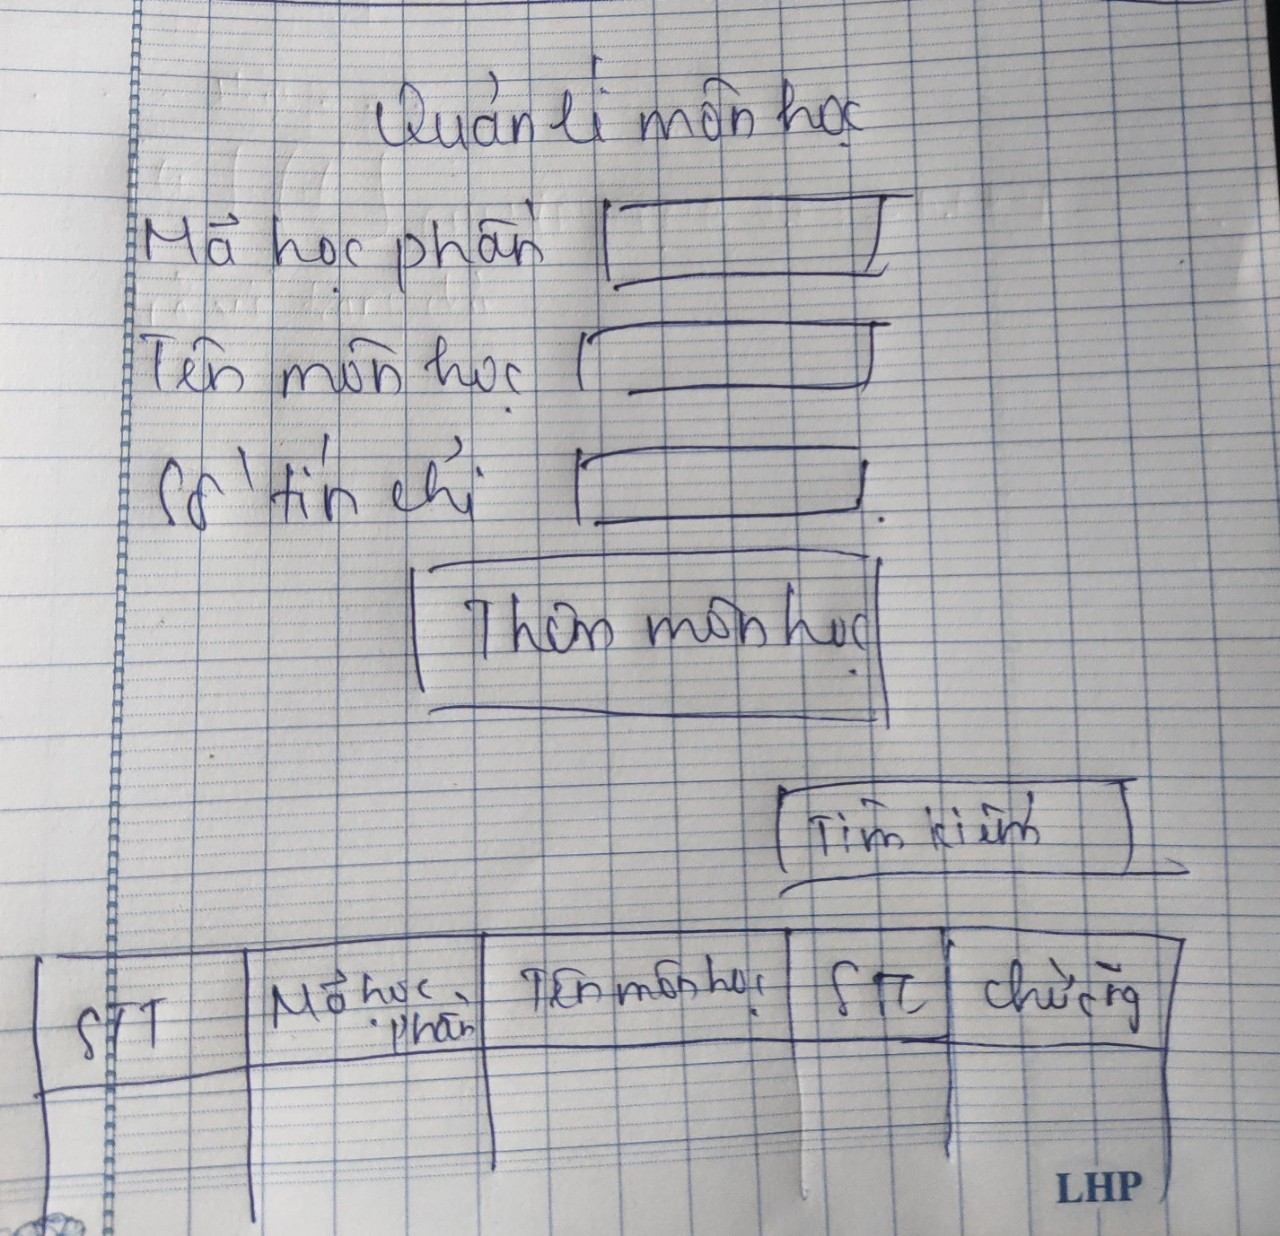 Quản lí môn học
Mã học phần
Tên môn học
Số tín chỉ
Thêm môn học
Tìm kiếm
STT
Mã học phần
Tên môn học
STC
LHP